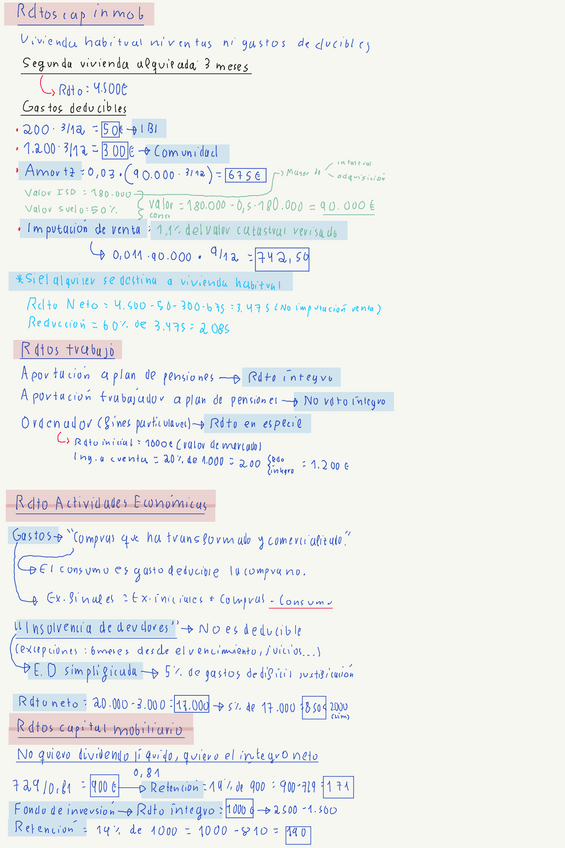 Rdtos cap inmob
Vivienda habitual ni ventas ni gastos deducibles
Segunda vivienda alquilada 3 meses
Rdto = 4.500€
Gastos deducibles
• 200 · 3/12 = 50€ → IBI
• 1.200 · 3/12 = 300€ → Comunidad
• Amortz = 0,03 · (90.000 · 3/12) = 675€ → Mayor de catastral adquisición
Valor ISD = 180.000
Valor suelo = 50% Valor const = 180.000 - 0,5 · 180.000 = 90.000€
• Imputación de venta: 1,1% del valor catastral revisado
0,011 · 90.000 · 9/12 = 742,50
*Si el alquiler se destina a vivienda habitual
Rdto Neto = 4.500 - 50 - 300 - 675 = 3.475 (No imputación venta)
Reducción = 60% de 3.475 = 2085
Rdtos trabajo
Aportación a plan de pensiones → Rdto íntegro
Aportación trabajador a plan de pensiones → No rdto íntegro
Ordenador (fines particulares) → Rdto en especie
Rdto inicial = 1000€ (valor de mercado)
Ing. a cuenta = 20% de 1.000 = 200 Rdo íntegro = 1.200€
Rdto Actividades Económicas
Gastos → "Compras que ha transformado y comercializado."
→ El consumo es gasto deducible la compra no.
→ Ex. finales = Ex. iniciales + Compras - Consumo
"Insolvencia de deudores" → No es deducible
(excepciones: 6 meses desde el vencimiento, juicios...)
→ E.D simplificada → 5% de gastos de difícil justificación
Rdto neto = 20.000 - 3.000 = 17.000 → 5% de 17.000 = 850€ 2000
Rdtos capital mobiliario
No quiero dividendo líquido, quiero el integro neto
0,81
729/0,81 = 900€ → Retención = 19% de 900 = 900 - 729 = 171
Fondo de inversión → Rdto íntegro = 1000€ → 2500 - 1.500
Retención = 19% de 1000 = 1000 - 810 = 190